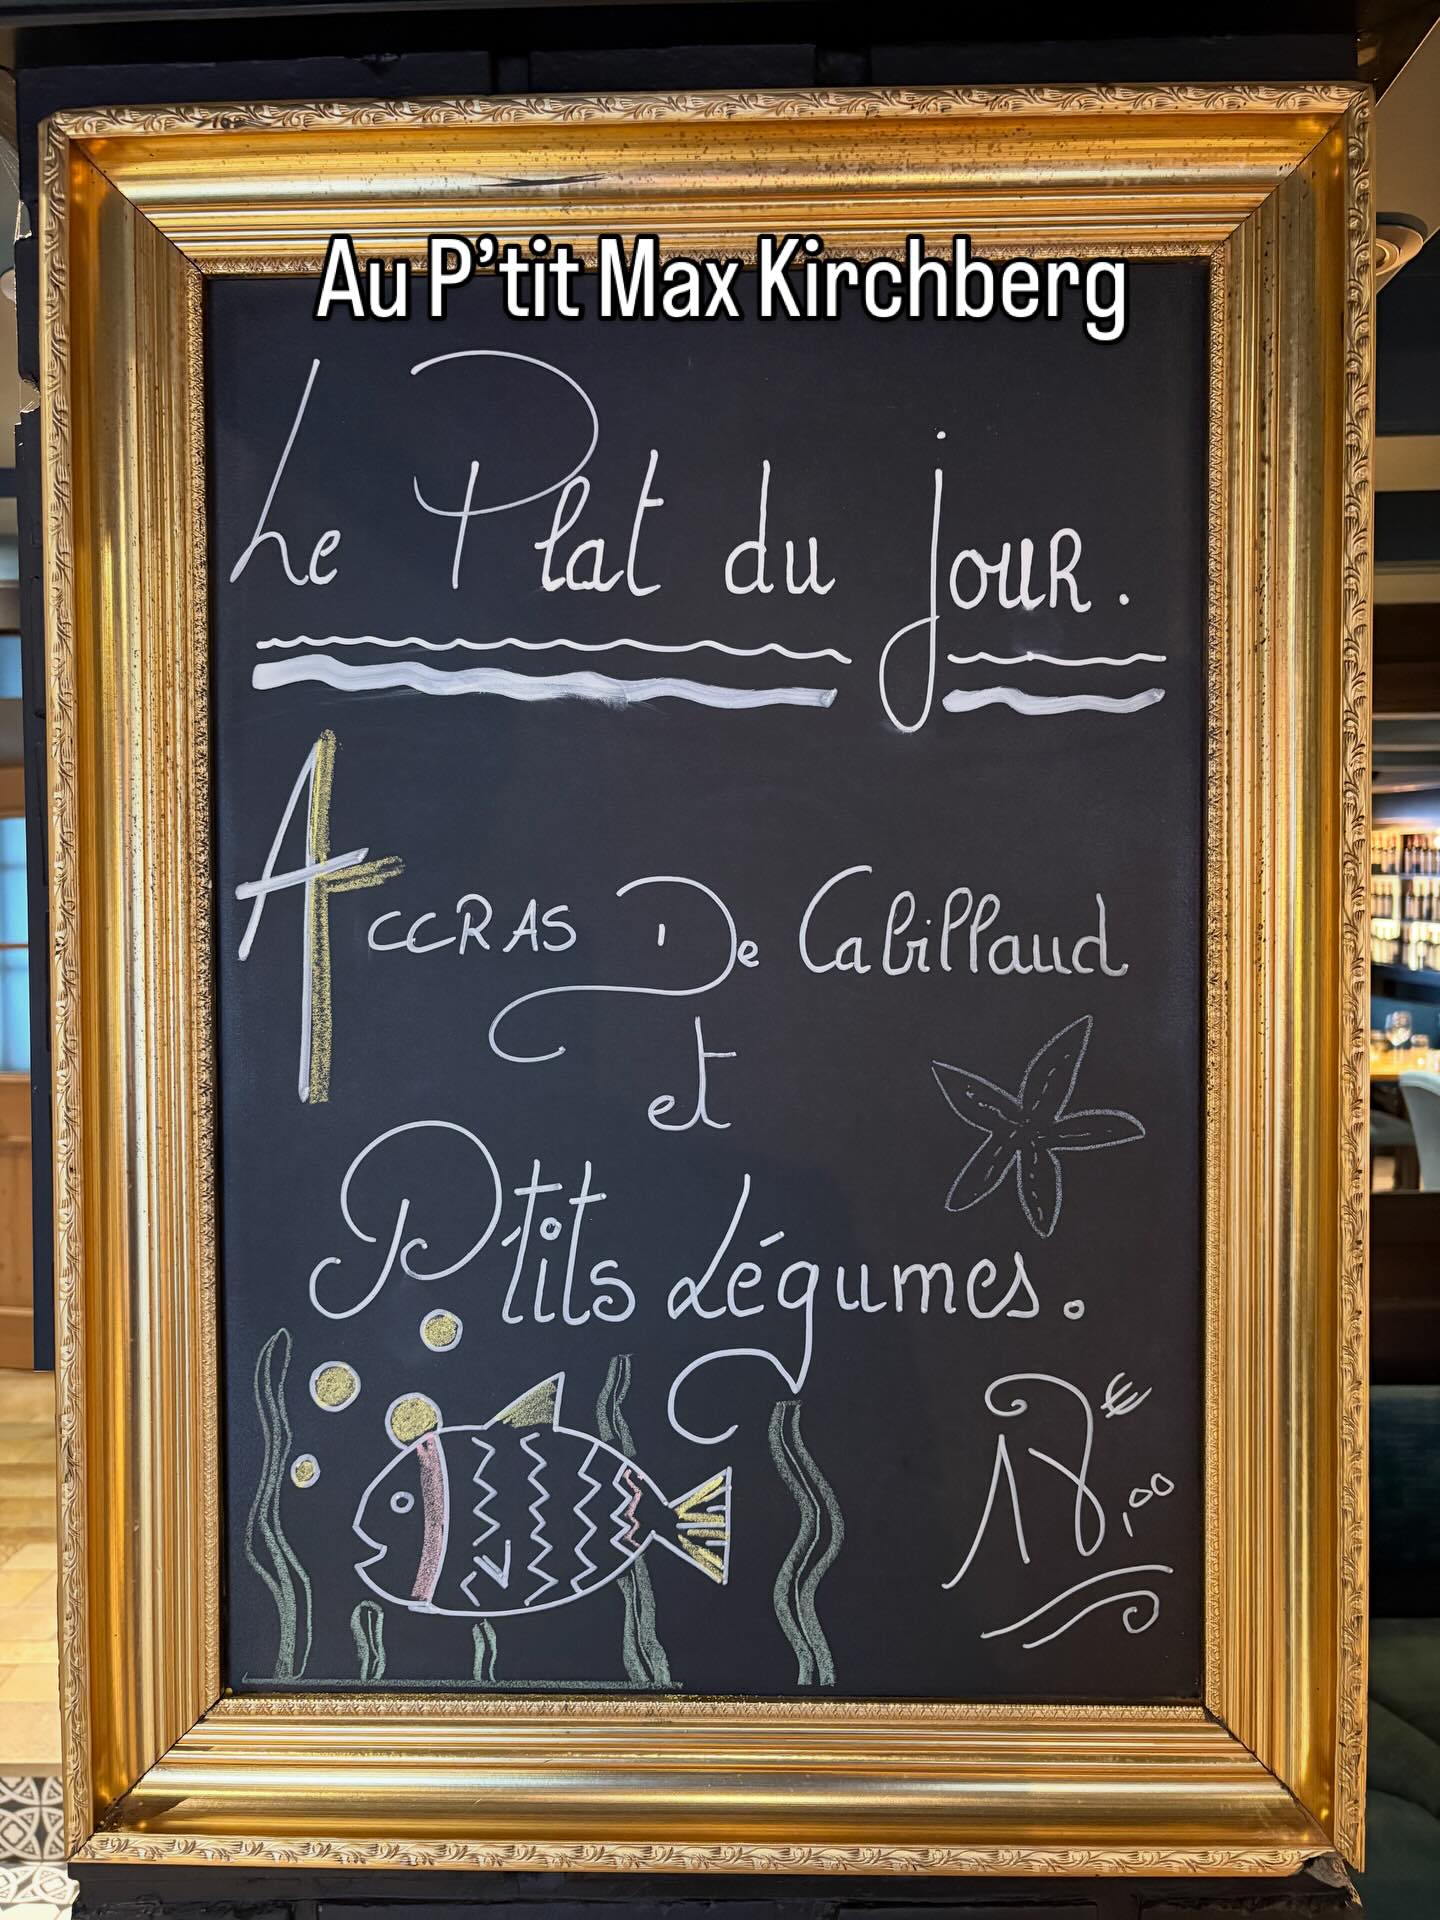 Au P'tit Max Kirchberg
Le Plat du jouR.
AccRAS De Cabillaud
et
P'tits Légumes.
18,00 €